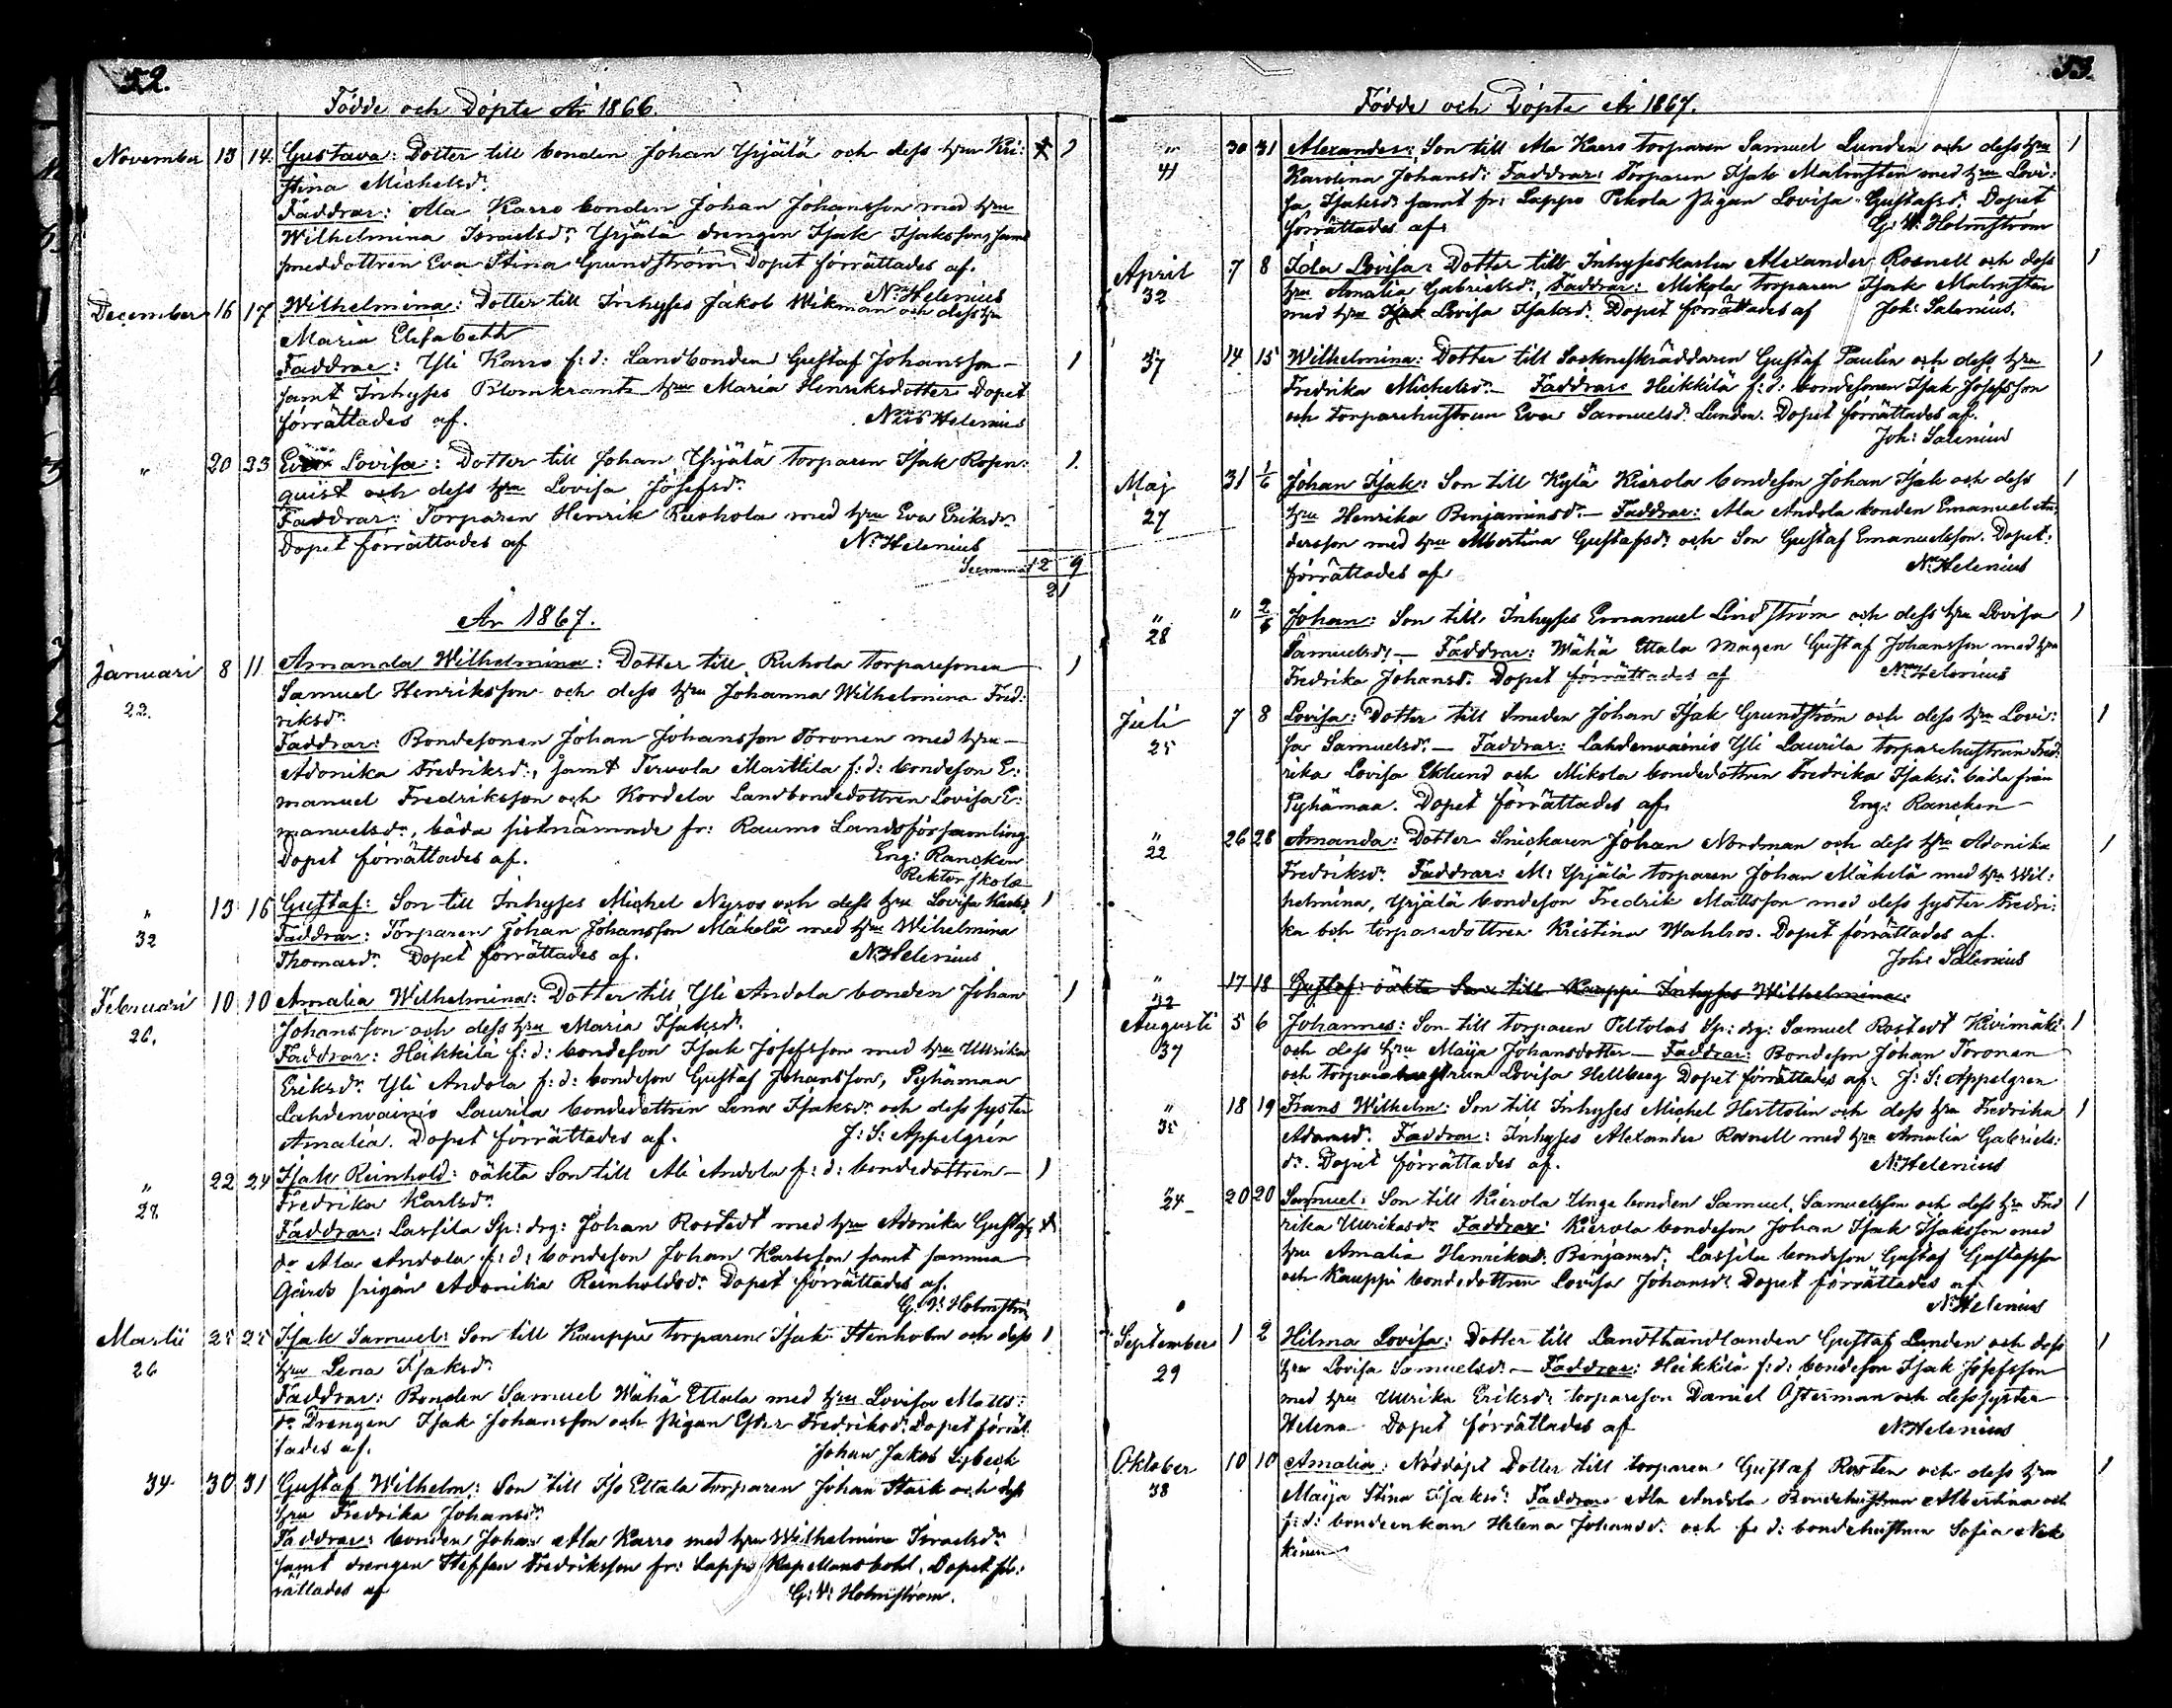 52.
Födde och Döpte År 1866.
November 13 14. Gustava: Dotter till bonden Johan Yrjälä och dess hru Kri: 1
stina Michelsdr.
Faddrar: Ala Karro bonden Johan Johansson med hru
Wilhelmina Israelsdr. Yrjälä drengen Isak Isaksson, samt
smeddottren Eva Stina Grundström. Dopet förrättades af.
Nr. Helenius
December 16 17 Wilhelmina: Dotter till Inhyses Jakob Wikman och dess hru
Maria Elisabeth
Faddrar: Yli Karro f: d: Landbonden Gustaf Johansson – 1
samt Inhyses Blomkrants hru Maria Henriksdotter Dopet
förrättades af. Helenius
" 20 23 Eva Lovisa: Dotter till Johan Yrjälä torparen Isak Rosen: 1.
quist och dess hru Lovisa Josefsdr.
Faddrar: Torparen Henrik Ruohola med hru Eva Eriksdr.
Dopet förrättades af Nr. Helenius
Summa 12 9
21
År 1867.
Januari 8 11 Amanda Wilhelmina: Dotter till Ruhola torparesonen 1
Samuel Henriksson och dess hru Johanna Wilhelmina Fred:
22. riksdr.
Faddrar: Bondesonen Johan Johansson Toronen med hru –
Adonika Fredriksdr., samt Tervola Marttila f: d: bondeson E:
manuel Fredriksson och Kordela Landbondedottren Lovisa E:
manuelsdr., båda sistnämnde fr: Raumo Landsförsamling
Dopet förrättades af. Eng: Rancken
Rektor skola
" 13 16 Gustaf: Son till Inhyses Michel Nyroos och dess hru Lovisa 1
32 Faddrar: Torparen Johan Johansson Mäkelä med hru Wilhelmina
Thomasdr. Dopet förrättades af. Nr. Helenius
Februari 10 10 Amalia Wilhelmina: Dotter till Yli Andola bonden Johan 1
26. Johansson och dess hru Maria Isaksdr.
Faddrar: Heikkilä f: d: bondeson Isak Josefsson med hru Ulrika
Eriksdr. Yli Andola f: d: bondeson Gustaf Johansson, Pyhämaa
Lahdenvainio Laurila bondedottren Lena Isaksdr. och dess syster
Amalia. Dopet förrättades af. J: S: Appelgrén
" 22 24 Isak Reinhold: oäkta Son till Ali Andola f: d: bondedottren – 1
27. Fredrika Karlsdr.
Faddrar: Lassila Sp: drg: Johan Rostedt med hru Adonika Gustafs
dr Ala Andola f: d: bondeson Johan Karlsson samt samma
Gårds pigan Adonika Reinholdsdr. Dopet förrättades af.
G. V: Holmström
Martii 25 25 Isak Samuel: Son till Kauppi torparen Isak Stenholm och dess 1
26 hru Lena Isaksdr.
Faddrar: Bonden Samuel Wähä Ettala med hru Lovisa Matts:
dr. Drengen Isak Johansson och pigan Ester Fredriksdr. Dopet förrät
tades af. Johan Jakob Lybeck
34. 30 31 Gustaf Wilhelm: Son till Iso Ettala torparen Johan Stark och dess
hru Fredrika Johansdr.
Faddrar: bonden Johan Ala Karro med hru Wilhelmina Israelsdr.
samt drengen Steffan Fredriksson fr: Lappi Kapellansbohl. Dopet för:
rättades af G: V: Holmström.
53.
Födde och Döpte År 1867.
" 30 31 Alexander: Son till Ala Karro torparen Samuel Lunden och dess hru 1
41 Karolina Johansdr: Faddrar: Torparen Isak Malmsten med hru Lovi:
sa Isaksdr. samt fr: Lappo pigan Lovisa Gustafsdr. Dopet
förrättades af. G: V: Holmström
April 7 8 Ida Lovisa: Dotter till Inhyseskarlen Alexander Rosnell och dess 1
32 hru Amalia Gabrielsdr. Faddrar: Mikola torparen Isak Malmsten
med hru Lovisa Isaksdr. Dopet förrättades af Joh: Salenius.
37 14 15 Wilhelmina: Dotter till Sockneskräddaren Gustaf Paulin och dess hru 1
Fredrika Michelsdr. – Faddrar: Heikkilä f: d: bondesonen Isak Josefsson
och torparehustrun Eva Samuelsd. Lunden. Dopet förrättades af.
Joh: Salenius
Maj 31 1/6 Johan Isak: Son till Kylä Kierola bondeson Johan Isak och dess 1
27 hru Henrika Benjaminsdr. – Faddrar: Ala Andola bonden Emanuel An:
dersson med hru Albertina Gustafsdr. och Son Gustaf Emanuelsson. Dopet:
förrättades af Nr. Helenius
" " 2/6 Johan: Son till Inhyses Emanuel Lindström och dess hru Lovisa 1
28 Samuelsdr. – Faddrar: Wähä Ettala Mågen Gustaf Johansson med hru
Fredrika Johansdr. Dopet förrättades af Helenius
Juli 7 8 Lovisa: Dotter till Smeden Johan Isak Grundström och dess hru Lovi: 1
25 sa Samuelsdr. – Faddrar: Lahdenvainio Yli Laurila torparehustrun Fred:
rika Lovisa Eklund och Mikola bondedottren Fredrika Isaksd. båda från
Pyhämaa. Dopet förrättades af. Eng: Rancken –
" 26 28 Amanda: Dotter Snickaren Johan Nordman och dess hru Adonika 1
22 Fredriksdr. Faddrar: M: Yrjälä torparen Johan Mäkelä med hru Wil:
helmina, Yrjälä bondeson Fredrik Mattsson med dess syster Fredri:
ka och torparedottren Kristina Wahlroos. Dopet förrättades af.
Joh: Salenius
" 17 18 Gustaf: oäkta Son till Kauppi Inhyses Wilhelmina:
32
Augusti 5 6 Johannes: Son till torparen Peltolas Sp: drg: Samuel Rostedt Kivimäki 1
37 och dess hru Maija Johansdotter – Faddrar: Bondeson Johan Toronen
och torparehustrun Lovisa Hellberg Dopet förrättades af. J: S: Appelgren
" 18 19 Frans Wilhelm: Son till Inhyses Michel Herttolin och dess hru Fredrika 1
35 Adamsd. Faddrar: Inhyses Alexander Rosnell med hru Amalia Gabriels:
dr. Dopet förrättades af. Nr. Helenius
" 20 20 Samuel: Son till Kierola Unge bonden Samuel Samuelsson och dess hru Fred 1
24 rika Ulrikasdr Faddrar: Kierola bondeson Johan Isak Isaksson med
hru Amalia Henrika Benjamsd. Lassila bondeson Gustaf Gustafsson
och Kauppi bondedottren Lovisa Johansdr. Dopet förrättades af
Nr. Helenius
September 1 2 Hilma Lovisa: Dotter till Landthandlanden Gustaf Lunden och dess 1
29 hru Lovisa Samuelsdr. – Faddrar: Heikkilä f: d: bondeson Isak Josefsson
med hru Ulrika Eriksdr. torpareson Daniel Österman och dess syster
Helena. Dopet förrättades af Nr. Helenius
Oktober 10 10 Amalia: Nöddöpt Dotter till torparen Gustaf Rosten och dess hru 1
38 Maija Stina Isaksdr: Faddrar: Ala Andola Bondehustrun Albertina och
f: d: bondeenkan Helena Johansd. och f: d: bondehustrun Sofia